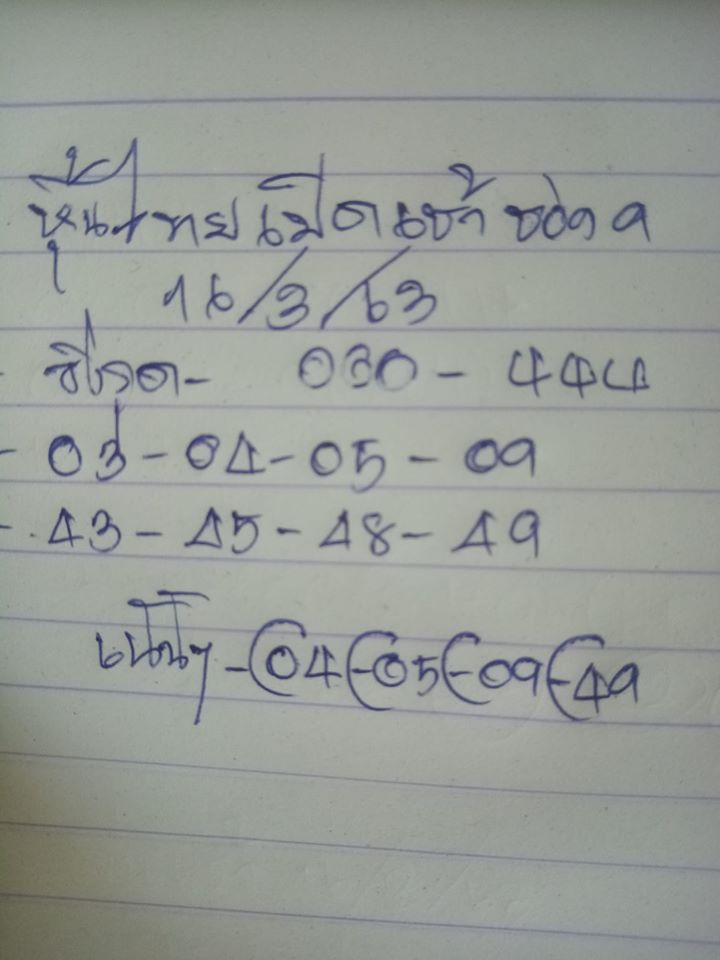 หุ้นไทยเปิดเช้า ช่อง 9
16/3/63
- 030 - 444
- 03 - 04 - 05 - 09
- 43 - 45 - 48 - 49
เน้นๆ - 04 - 05 - 09 - 49